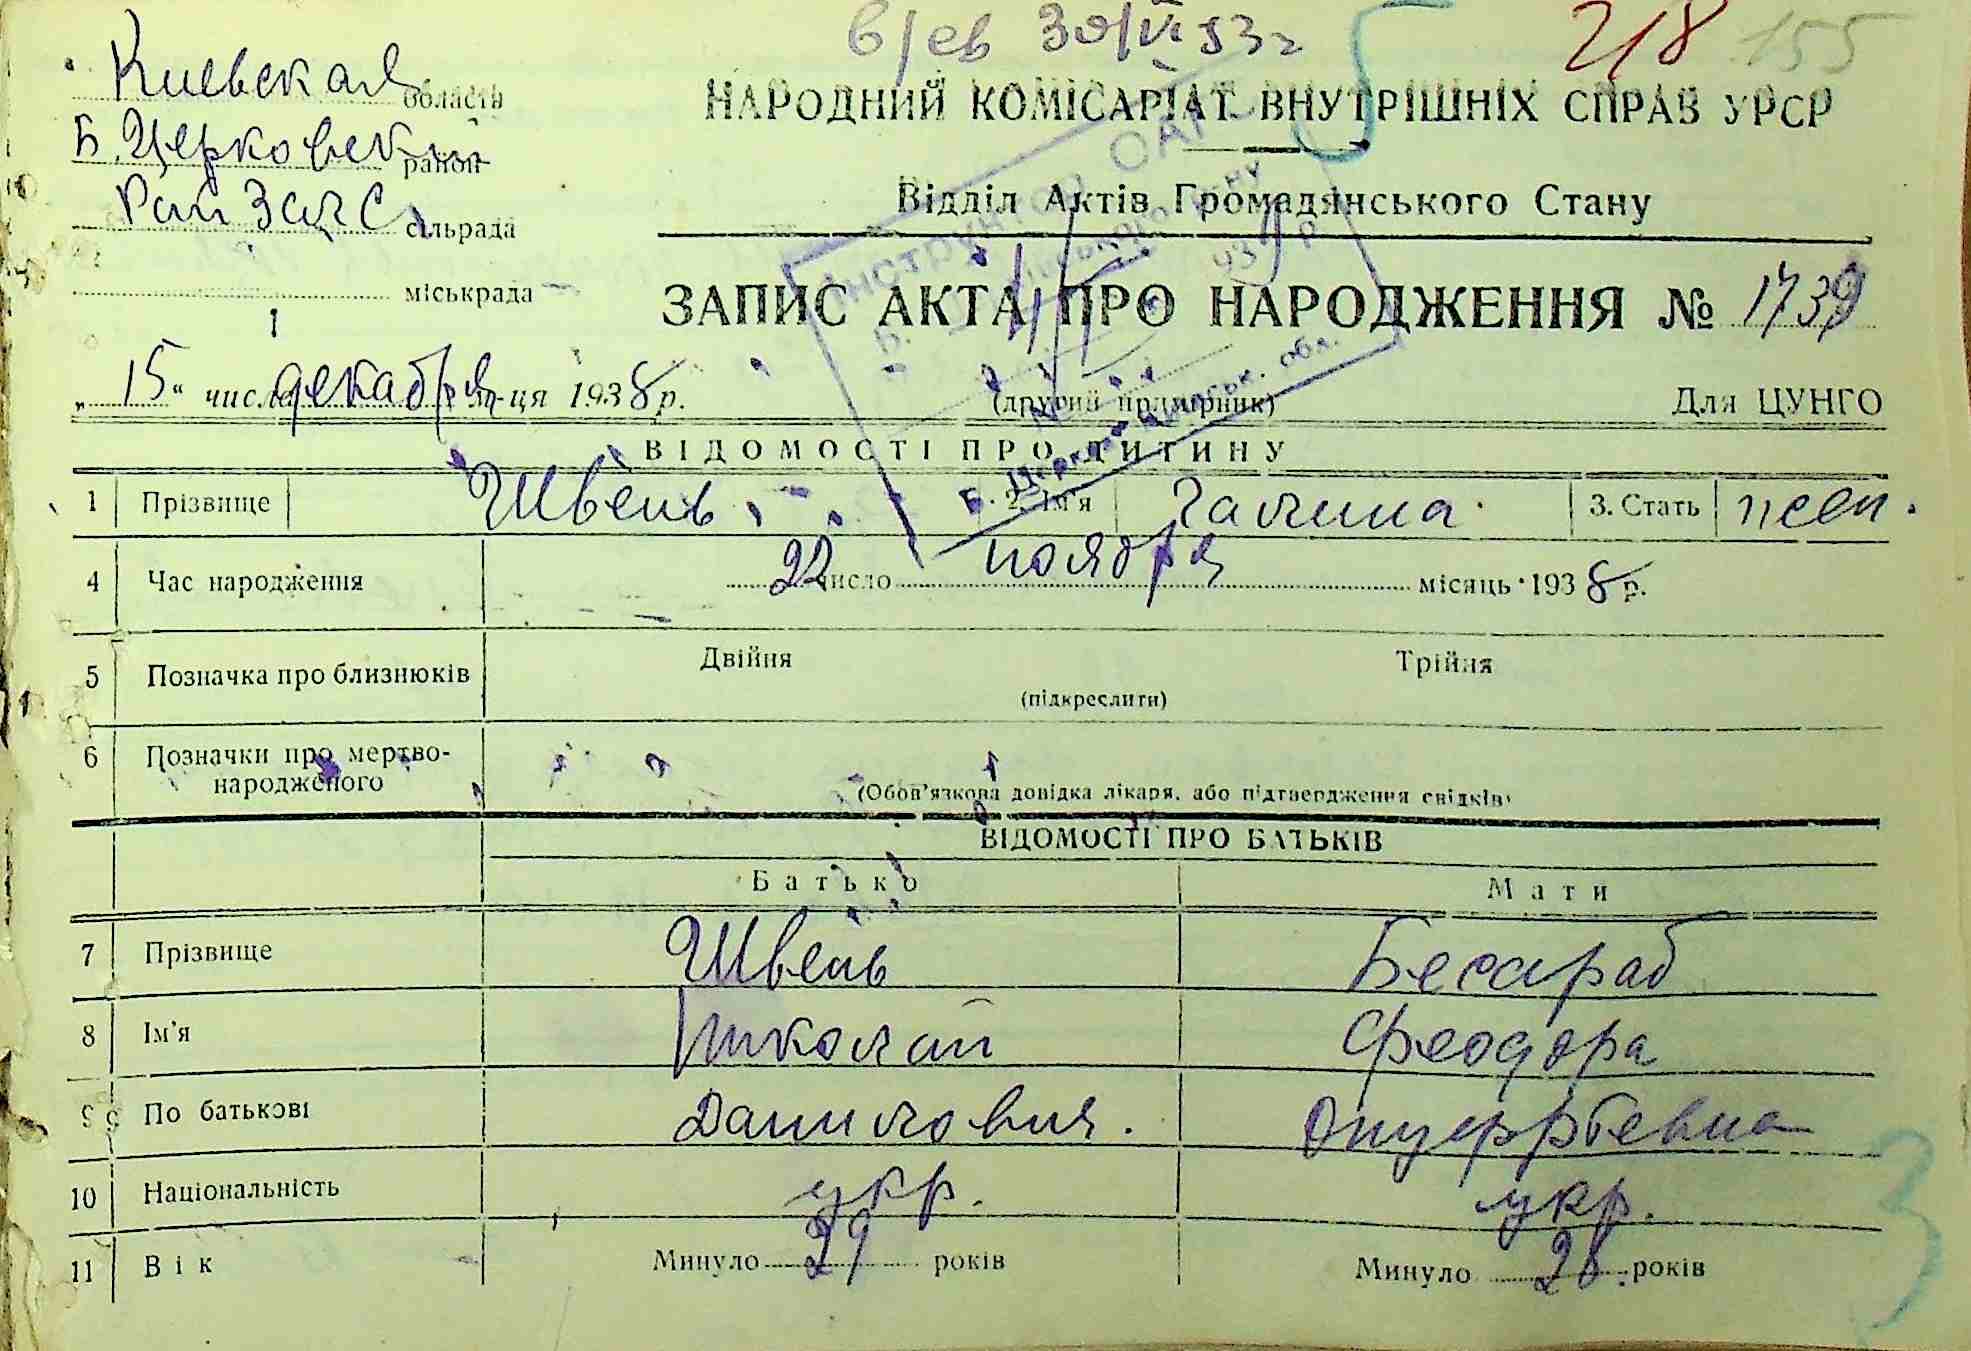 в/св 30/VI 53 г 5 2/8 155
Киевская область
НАРОДНИЙ КОМІСАРІАТ ВНУТРІШНІХ СПРАВ УРСР
Б. Церковск район
Відділ Актів Громадянського Стану
Рай ЗАГС сільрада
міськрада
ЗАПИС АКТА ПРО НАРОДЖЕННЯ № 1739
„15“ числа декабря м-ця 1938 р.
(другий примірник)
Для ЦУНГО
ВІДОМОСТІ ПРО ДИТИНУ
1 Прізвище Швець 2. Ім'я Галина 3. Стать жен.
4 Час народження 22 число ноября місяць 1938 р.
5 Позначка про близнюків Двійня Трійня
(підкреслити)
6 Позначки про мертво-
народженого
(Обов'язкова довідка лікаря, або підтвердження свідків)
ВІДОМОСТІ ПРО БАТЬКІВ
Батько Мати
7 Прізвище Швець Бесараб
8 Ім'я Николай Феодора
9 По батькові Данилович. Онуфрбевна
10 Національність укр. укр.
11 Вік Минуло 29 років Минуло 28 років
3